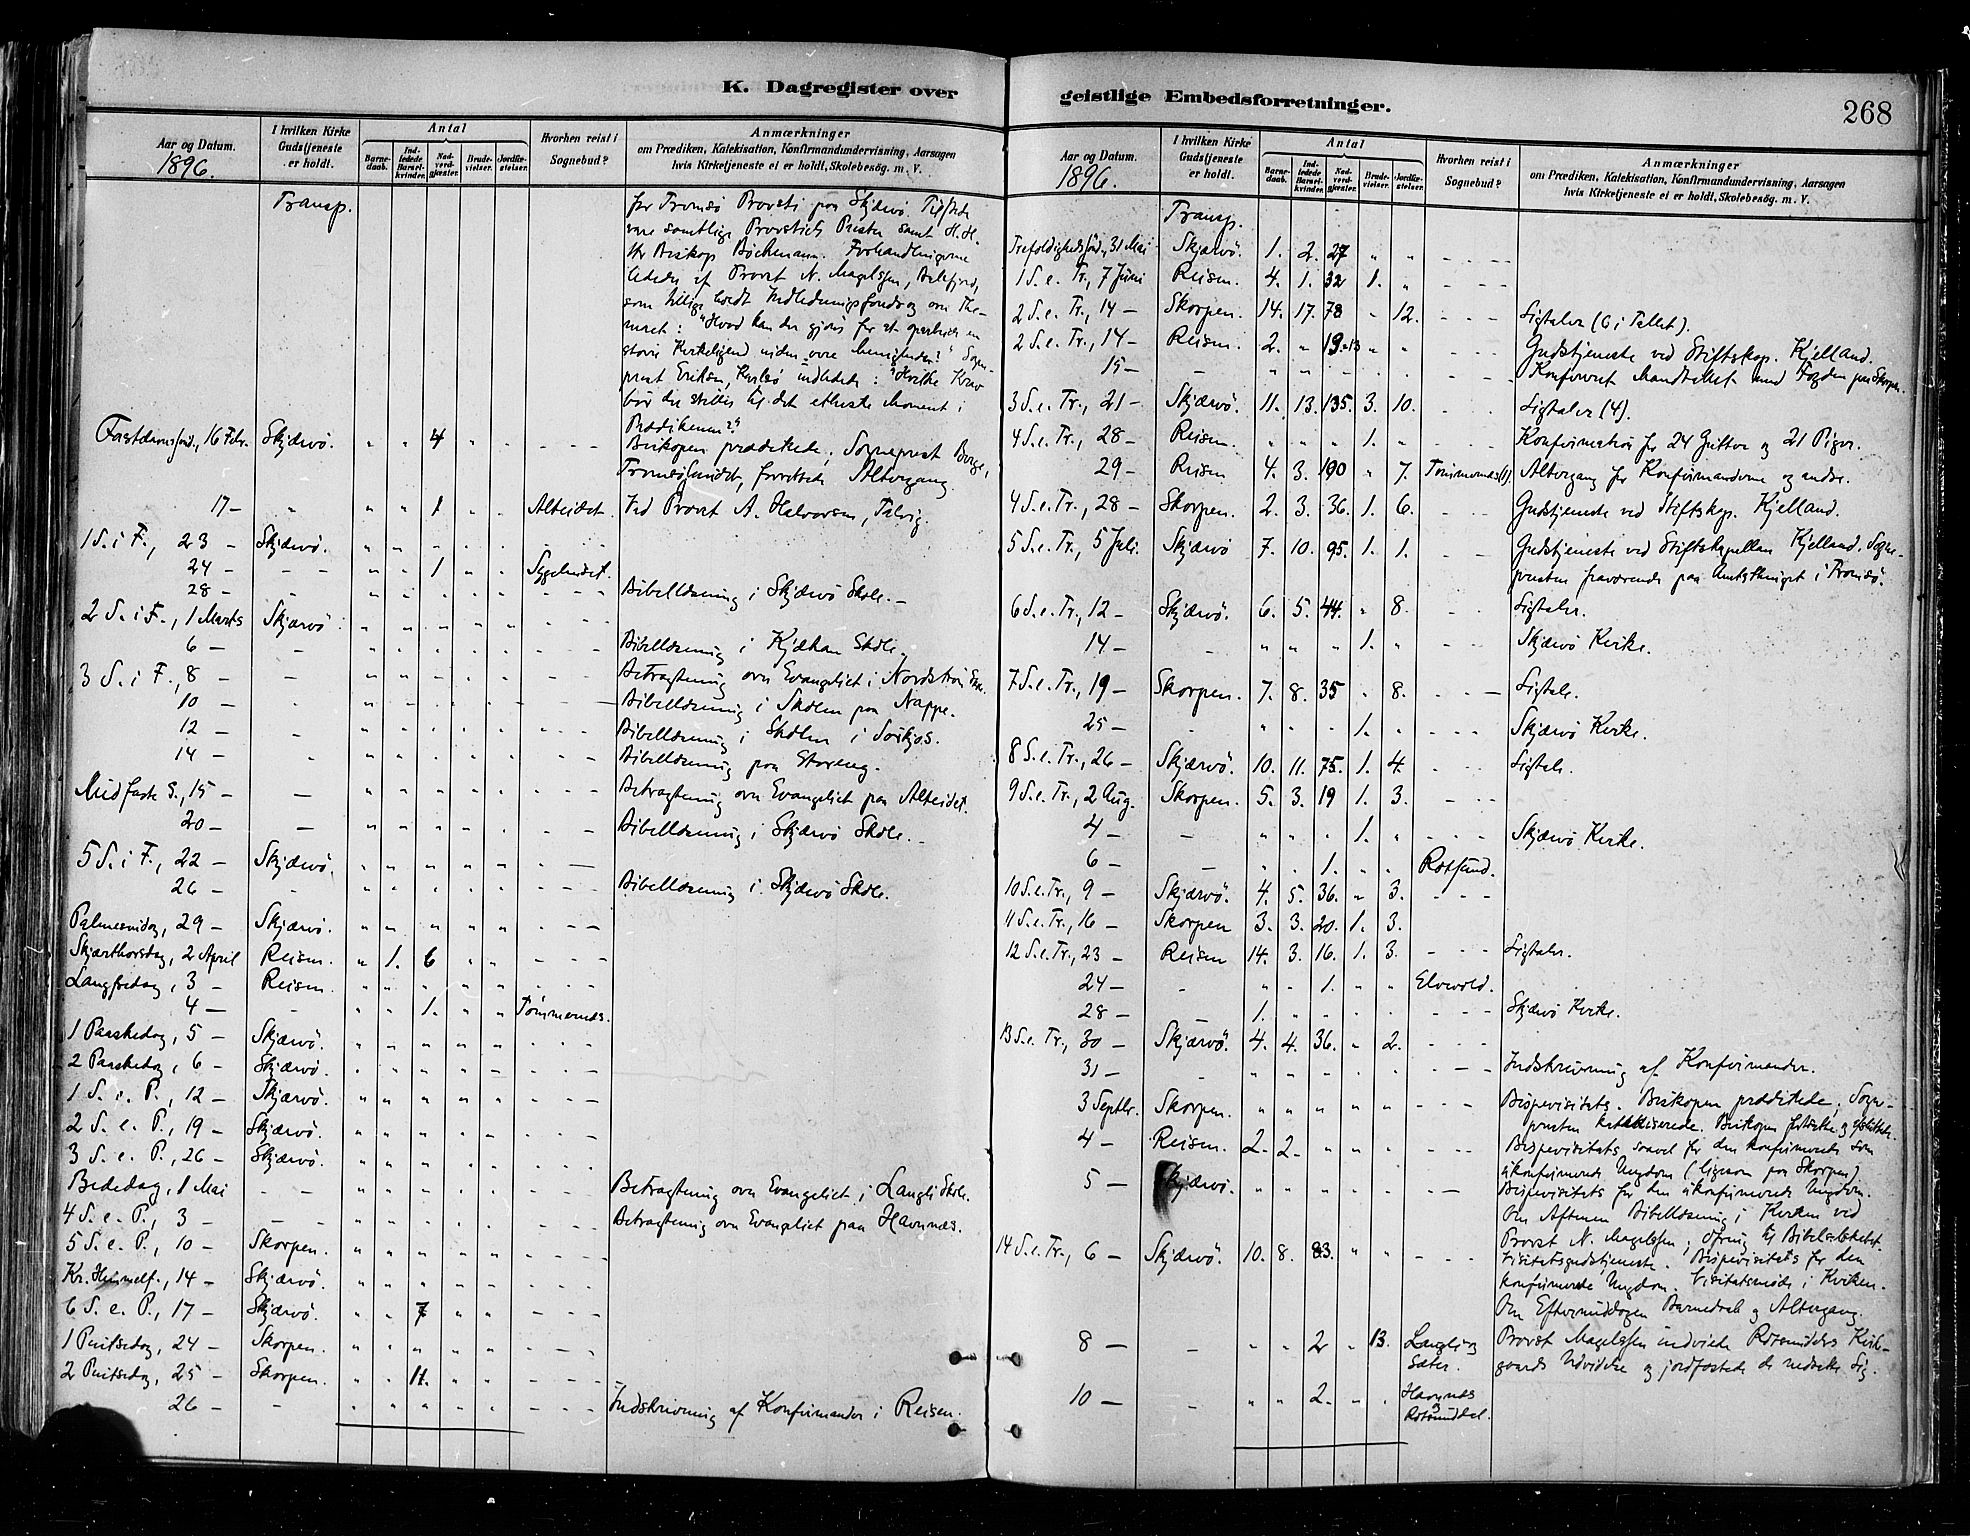 K. Dagregister over
Aar og Datum. I hvilken Kirke Gudstjeneste er holdt. Antal Hvorhen reist i Sognebud? Anmærkninger
Barnedaab. Indledede Barselkvinder. Nadverdgjæster. Brudevielser. Jordfæstelser. om Prædiken, Katekisation, Konfirmandundervisning, Aarsagen hvis Kirketjeneste ei er holdt, Skolebesög. m. V.
1896.
Transp. for Tromsö Provsti paa Skjærvö. Tilstede
vare samtlige Provstiets Prester samt H. H.
Hr Biskop Böckmann. Forhandlingerne
lededes af Provst N. Magelssen,
som tillige holdt Indledningsforedrag om The-
maet: "Hvad kan der gjöres for at oparbeide en
större Kirkelighed inden vore Menigheder?" Sogne-
prest Eriksen, Karlsö indledede: "Hvilke Krav
bör der stilles til det ethiske Moment i
Prædikenen?"
Fastelavnssönd., 16 Febr. Skjærvö. " " 4 " " Biskopen prædikede, Sogneprest Borge,
Tromsösundet, forrettede Altergang.
17 – " " " 1 " " Alteidet. Ved Provst A. Halvorsen, Talvig.
1 S. i F., 23 – Skjærvö. " " " " "
24 – – " " 1 " " Sygebudet.
28 – " " " " " Bibellæsning i Skjærvö Skole. –
2 S. i F., 1 Marts Skjærvö " " " " "
6 – – " " " " " Bibellæsning i Kjækan Skole.
3 S. i F., 8 – – " " " " " Betragtning over Evangeliet i Nordströi
10 – " " " " " Bibellæsning i Skolen paa Nappe.
12 – – " " " " " Bibellæsning i Skolen i Sörkjos.
14 – " " " " " Bibellæsning paa Storeng.
Midfaste S., 15 – – " " " " " Betragtning over Evangeliet paa Alteidet.
20 – – " " " " " Bibellæsning i Skjærvö Skole. –
5 S. i F., 22 – Skjærvö. " " " " "
26 – – " " " " " Bibellæsning i Skjærvö Skole.
Palmesöndag, 29 – Skjærvö. " " " " "
Skjærthorsdag, 2 April Reisen. " 1. 6 " "
Langfredag, 3 – Reisen. " " " " "
4 – – " " 1. " " Tömmernæs.
1 Paaskedag, 5 – Skjærvö. " " " " "
2 Paaskedag, 6 – Skjærvö. " " " " "
1 S. e. P., 12 – Skjærvö. " " " " "
2 S. e. P., 19 – Skjærvö. " " " " "
3 S. e. P., 26 – Skjærvö. " " " " "
Bededag, 1 Mai – – " " " " " Betragtning over Evangeliet i Langli Skole.
4 S. e. P., 3 – – – " " " " " Betragtning over Evangeliet paa Havnnæs.
5 S. e. P., 10 – Skorpen. " " " " "
Kr. Himmelf., 14 – Skjærvö. " " " " "
6 S. e. P., 17 – Skjærvö. " " 7 " "
1 Pintsedag, 24 – Skorpen. " " " " "
2 Pintsedag, 25 – Skorpen. " " 11. " "
26 – – " " " " " Indskrivning af Konfirmander i Reisen.
geistlige Embedsforretninger.
268
Aar og Datum. I hvilken Kirke Gudstjeneste er holdt. Antal Hvorhen reist i Sognebud? Anmærkninger
Barnedaab. Indledede Barselkvinder. Nadverdgjæster. Brudevielser. Jordfæstelser. om Prædiken, Katekisation, Konfirmandundervisning, Aarsagen hvis Kirketjeneste ei er holdt, Skolebesög. m. V.
1896.
Transp.
Trefoldighedssönd., 31 Mai Skjærvö. 1. 2. 27 " "
1 S. e. Tr., 7 Juni Reisen. 4. 1. 32 1. "
2 S. e. Tr., 14 – Skorpen. 14. 17. 78 " 12. Ligtaler (6 i Tallet).
2 S. e. Tr., 14 – Reisen. 2. " 19. " " Gudstjeneste ved Stiftskap. Kjelland.
15 – – " " " " " Konfereret Mandtallet med Fogden paa Skorpen.
3 S. e. Tr., 21 – Skjærvö. 11. 13. 135. 3. 10. Ligtaler (4).
4 S. e. Tr., 28 – Reisen. " " " 1. " Konfirmation for 24 Gutter og 21 Piger.
29 – Reisen 4. 3. 190 " 7. Tömmernæs(1). Altergang for Konfirmanderne og andre.
4 S. e. Tr., 28 – Skorpen. 2. 3. 36. 1. 6. Gudstjeneste ved Stiftskap. Kjelland.
5 S. e. Tr., 5 Juli. Skjærvö 7. 10. 95. 1. 1. Gudstjeneste ved Stiftskapellan Kjelland. Sogne-
presten fraværende paa Amtsthinget i Tromsö.
6 S. e. Tr., 12 – Skjærvö. 6. 5. 44. " 8. Ligtaler.
14 – – " " " 1. " Skjærvö Kirke.
7 S. e. Tr., 19 – Skorpen. 7. 8. 35 " 8. Ligtale.
25 – – " " " 1. " Skjærvö Kirke.
8 S. e. Tr., 26 – Skjærvö. 10. 11. 75. 1. 4. Ligtale.
9 S. e. Tr., 2 Aug. Skorpen. 5. 3. 19 1. 3.
4 – – " " " 1. " Skjærvö Kirke.
6 – – " " 1. " " Rotsund.
10 S. e. Tr., 9 – Skjærvö. 4. 5. 36. " 3.
11 S. e. Tr., 16 – Skorpen 3. 3. 20. 1. 3.
12 S. e. Tr., 23 – Reisen 14. 3. 16. 1. 3. Ligtaler.
24 – – " " 1. " " Elvevold.
28 – – 1. " " " " Skjærvö Kirke.
13 S. e. Tr., 30 – Skjærvö. 4. 4. 36. " 2.
31 – – " " " " " Indskrivning af Konfirmander.
3 Septbr. Skorpen. " " " " " Bispevisitats. Biskopen prædikede; Sogne-
presten katekiserede. Biskopen
4 – Reisen. 2. 2. " " " Bispevisitats saavel for den konfirmerede som
ukonfirmerede Ungdom (ligesom paa Skorpen).
5 – Skjærvö. " " " " " Bispevisitats for den ukonfirmerede Ungdom.
Om Aftenen Bibellæsning i Kirken ved
Provst N. Magelssen; Ofring til Bibelselskabet.
14 S. e. Tr., 6 – Skjærvö. 10. 8. 83. " " Visitatsgudstjeneste. Bispevisitats for den
konfirmerede Ungdom. Visitatsmöde i Kirken.
Om Eftermiddagen Barnedaab og Altergang.
8 – – " " 2 " 13. Langli og Sæter. Provst Magelssen indviede Rotsunddals Kirke-
gaards Udvidelse og jordfæstede de nedsatte Lig.
10 – – " " 2. " " Havnnæs og Rotsunddal.